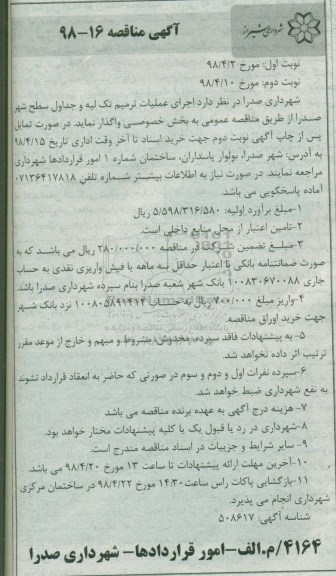 شهرداری شیراز
آگهی مناقصه ۱۶-۹۸
نوبت اول: مورخ ۹۸/۴/۲
نوبت دوم: مورخ ۹۸/۴/۱۰
شهرداری صدرا در نظر دارد اجرای عملیات ترمیم تک لبه و جداول سطح شهر
صدرا از طریق مناقصه عمومی به بخش خصوصی واگذار نماید. در صورت تمایل
پس از چاپ آگهی نوبت دوم جهت خرید اسناد تا آخر وقت اداری تاریخ ۹۸/۴/۱۵
به آدرس: شهر صدرا، بولوار پاسداران، ساختمان شماره ۱ امور قراردادها شهرداری
مراجعه نمایند. در صورت نیاز به اطلاعات بیشتر شماره تلفن ۰۷۱۳۶۴۱۷۸۱۸
آماده پاسخگویی می باشد.
۱-مبلغ برآورد اولیه: ۵/۵۹۸/۳۱۶/۵۸۰ ریال
۲-تامین اعتبار از محل منابع داخلی است.
۳-مبلغ تضمین شرکت در مناقصه ۲۸۰/۰۰۰/۰۰۰ ریال می باشد که به
صورت ضمانتنامه بانکی با اعتبار حداقل سه ماهه یا فیش واریزی نقدی به حساب
جاری ۱۰۰۸۳۰۶۷۰۰۸۸ بانک شهر شعبه صدرا بنام سپرده شهرداری صدرا باشد
۴-واریز مبلغ ۷۰۰/۰۰۰ ریال به حساب ۱۰۰۸۰۵۸۹۱۴۱۴ نزد بانک شهر
جهت خرید اوراق مناقصه.
۵- به پیشنهادات فاقد سپرده، مخدوش، مشروط و مبهم و خارج از موعد مقرر
ترتیب اثر داده نخواهد شد.
۶-سپرده نفرات اول و دوم و سوم در صورتی که حاضر به انعقاد قرارداد نشوند
به نفع شهرداری ضبط خواهد شد.
۷- هزینه درج آگهی به عهده برنده مناقصه می باشد
۸-شهرداری در رد یا قبول یک یا کلیه پیشنهادات مختار خواهد بود.
۹- سایر شرایط و جزییات در اسناد مناقصه مندرج است.
۱۰-آخرین مهلت ارائه پیشنهادات تا ساعت ۱۳ مورخ ۹۸/۴/۲۰ می باشد
۱۱-بازگشایی پاکات راس ساعت ۱۴:۳۰ مورخ ۹۸/۴/۲۲ در ساختمان مرکزی
شهرداری انجام می پذیرد.
شناسه آگهی: ۵۰۸۶۱۷
۴۱۶۴/م.الف-امور قراردادها- شهرداری صدرا